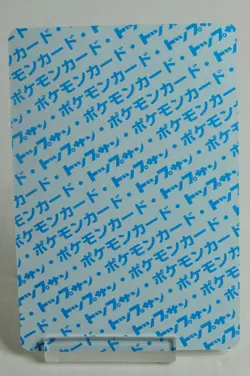 ポケモンカード・
トップサン・ポケモンカード
ポケモンカード・トップサン・
トップサン・ポケモンカード・
ポケモンカード・トップサン・
トップサン・ポケモンカード・
ポケモンカード・トップサン・
トップサン・ポケモンカード・
ポケモンカード・トップサン・
トップサン・ポケモンカード・
ポケモンカード・トップサン
トップサン・ポケモン